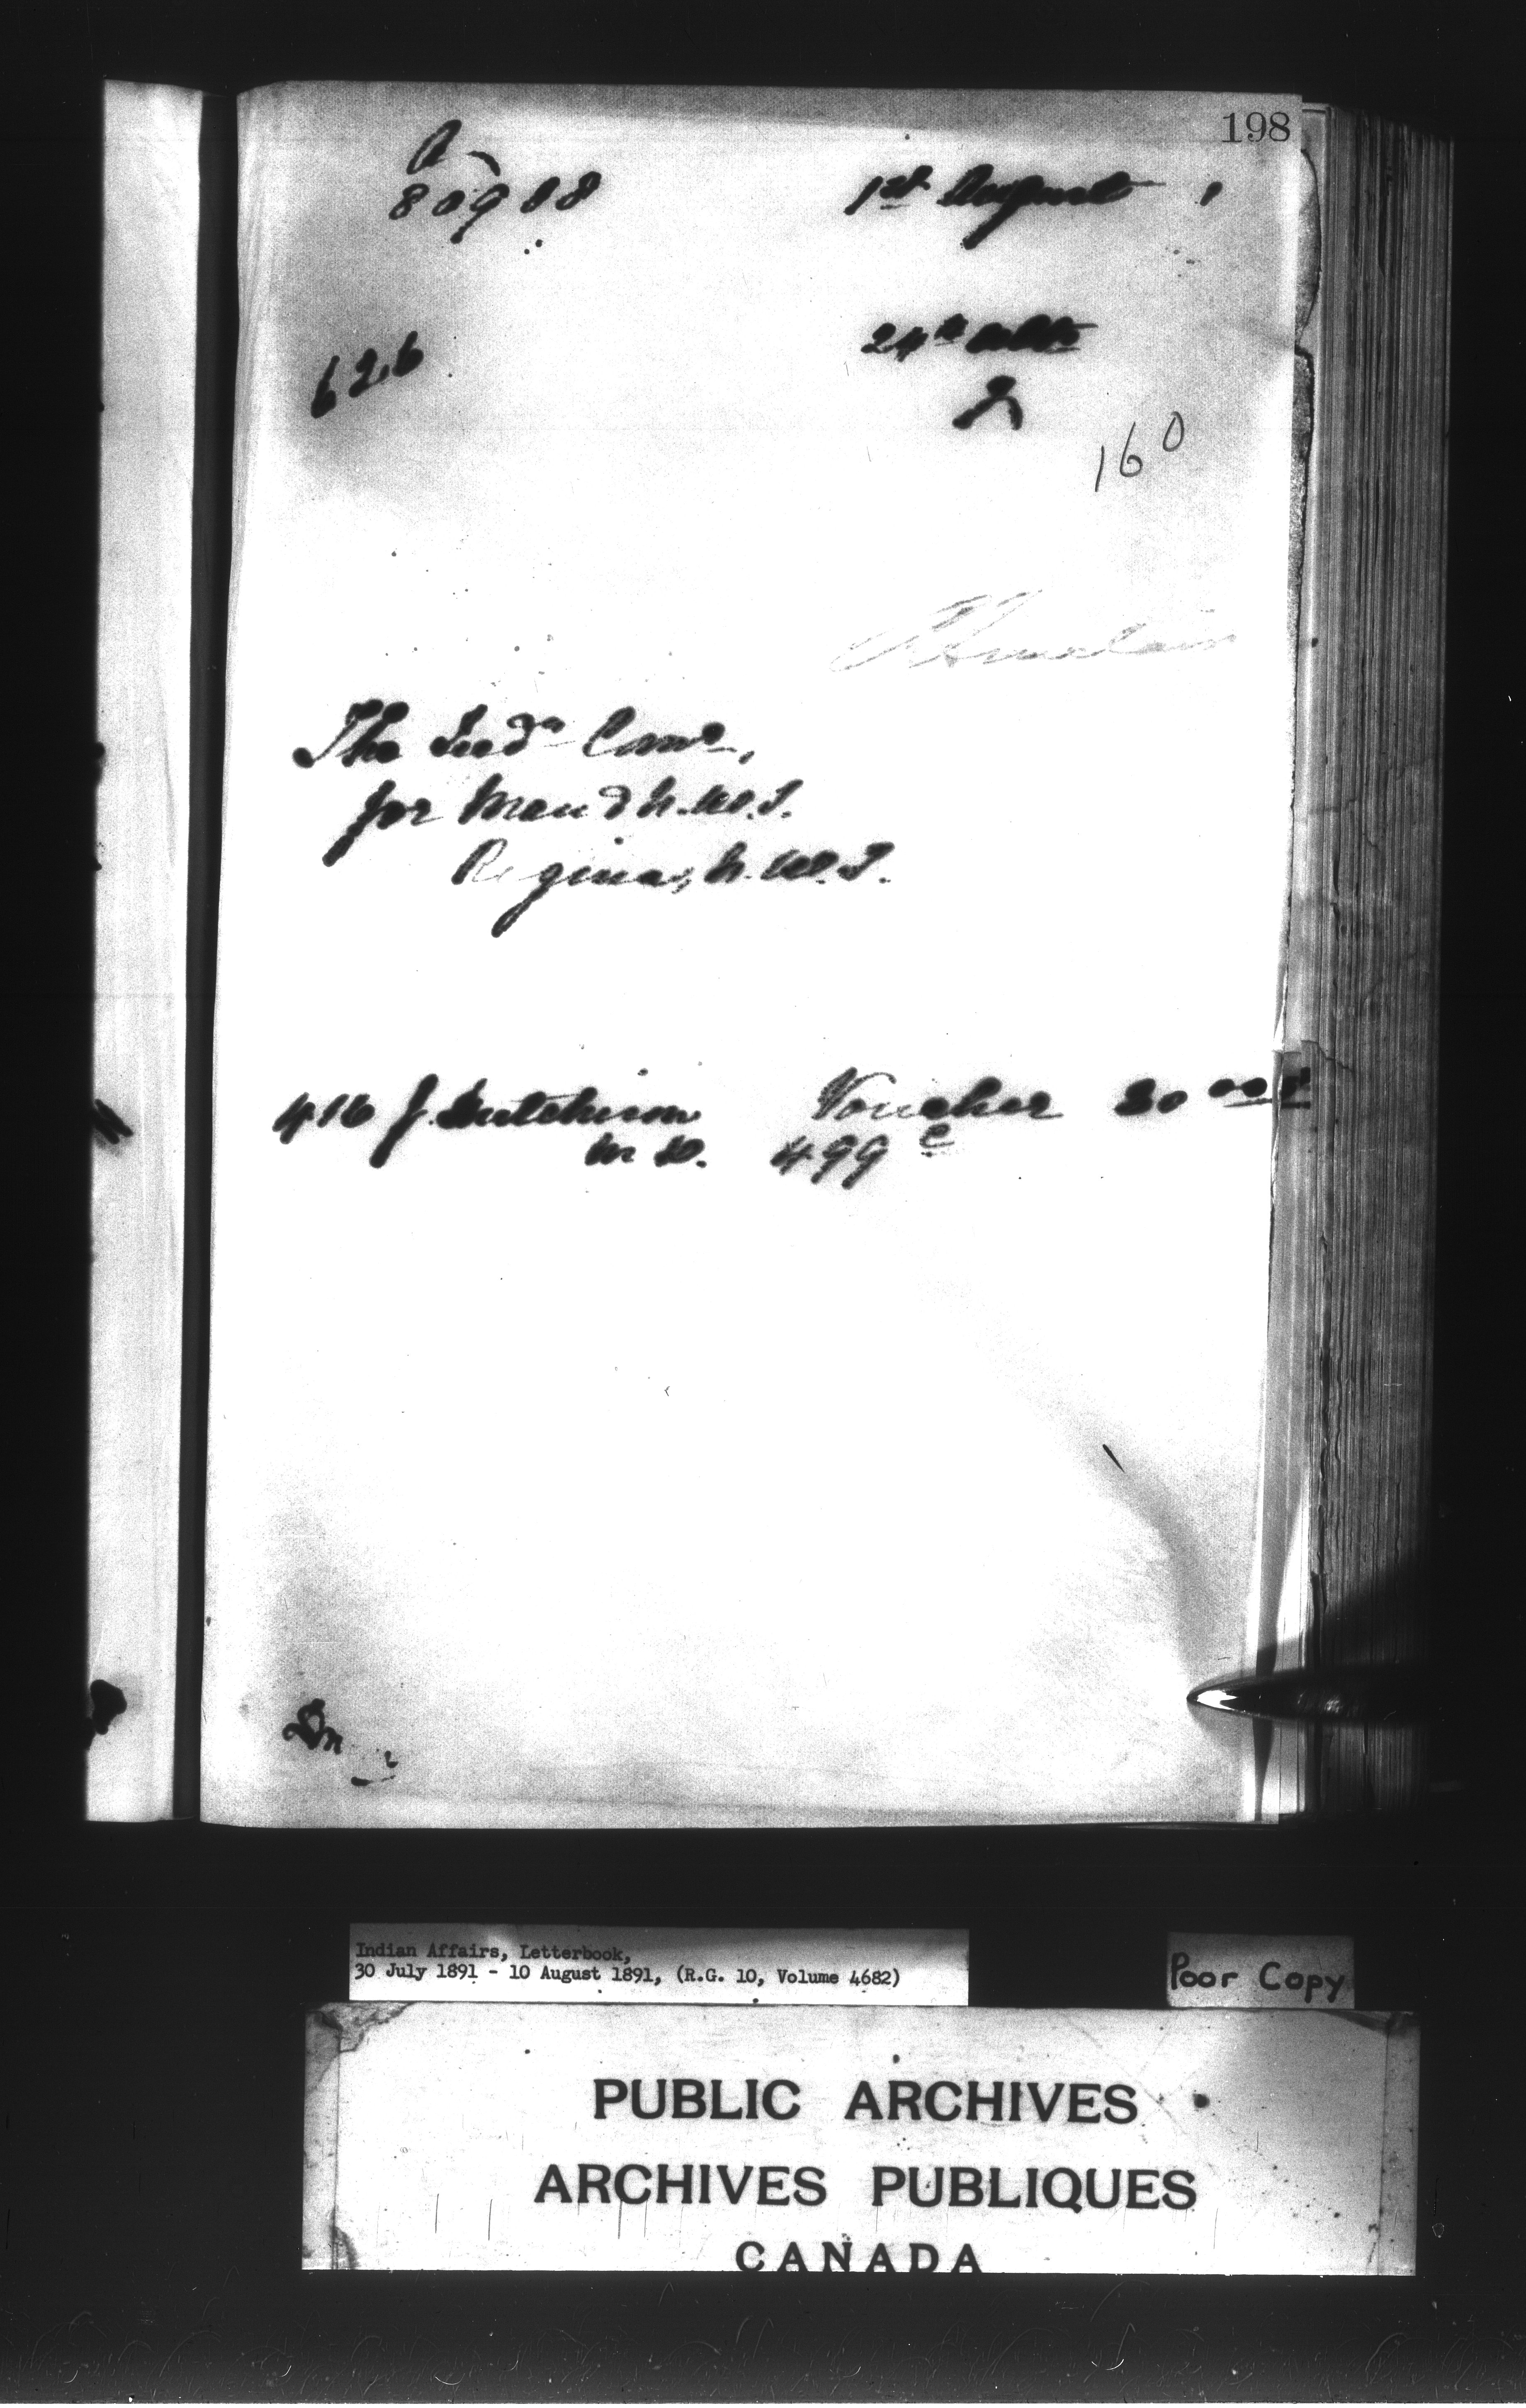 198
A
80988
1st August
626
24th ulto
160
The Ind'n Com'r,
for Man & N.W.T.
Regina, N.W.T.
416 J. Hutchison Voucher 30 00
M D. 499 c
Indian Affairs, Letterbook,
30 July 1891 - 10 August 1891, (R.G. 10, Volume 4682)
Poor Copy
PUBLIC ARCHIVES
ARCHIVES PUBLIQUES
CANADA